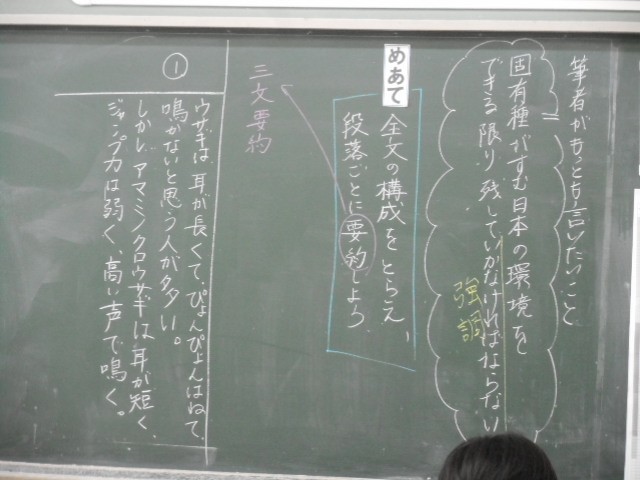 筆者がもっとも言いたいこと
固有種がすむ日本の環境を
できる限り残していかなければならない
強調
めあて
全文の構成をとらえ、
段落ごとに要約しよう
三文要約
①
ウサギは、耳が長くて、ぴょんぴょんはねて、
鳴かないと思う人が多い。
しかし、アマミノクロウサギは耳が短く、
ジャンプ力は弱く、高い声で鳴く。